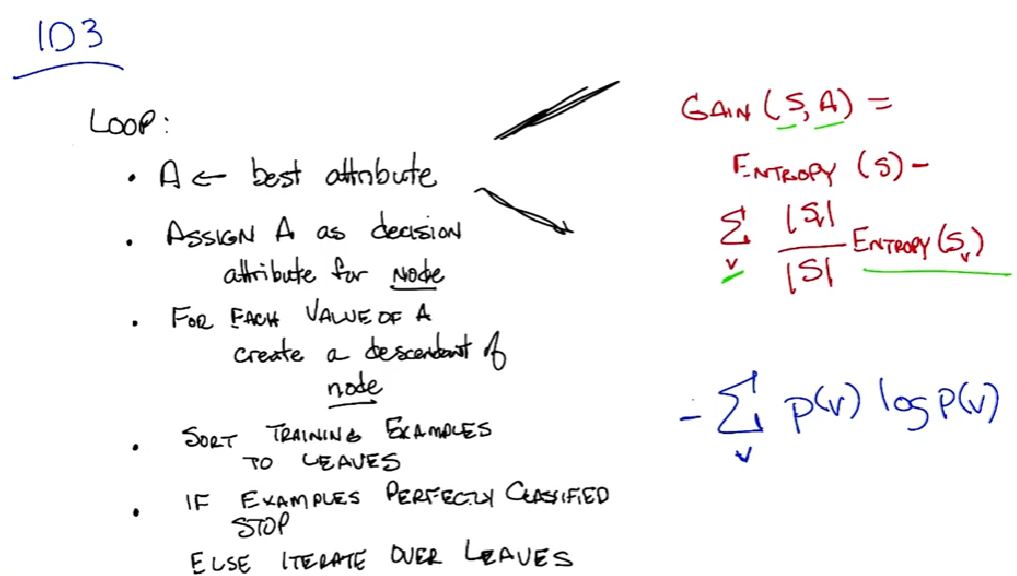 ID3
LOOP:
• A ← best attribute
• ASSIGN A AS decision
attribute for NODE
• FOR EACH VALUE OF A
create a descendent of
node
• SORT TRAINING EXAMPLES
TO LEAVES
• IF EXAMPLES PERFECTLY CLASSIFIED
STOP
ELSE ITERATE OVER LEAVES
GAIN (S, A) =
ENTROPY (S) -
∑_v |S_v| / |S| ENTROPY(S_v)
- ∑_v p(v) log p(v)